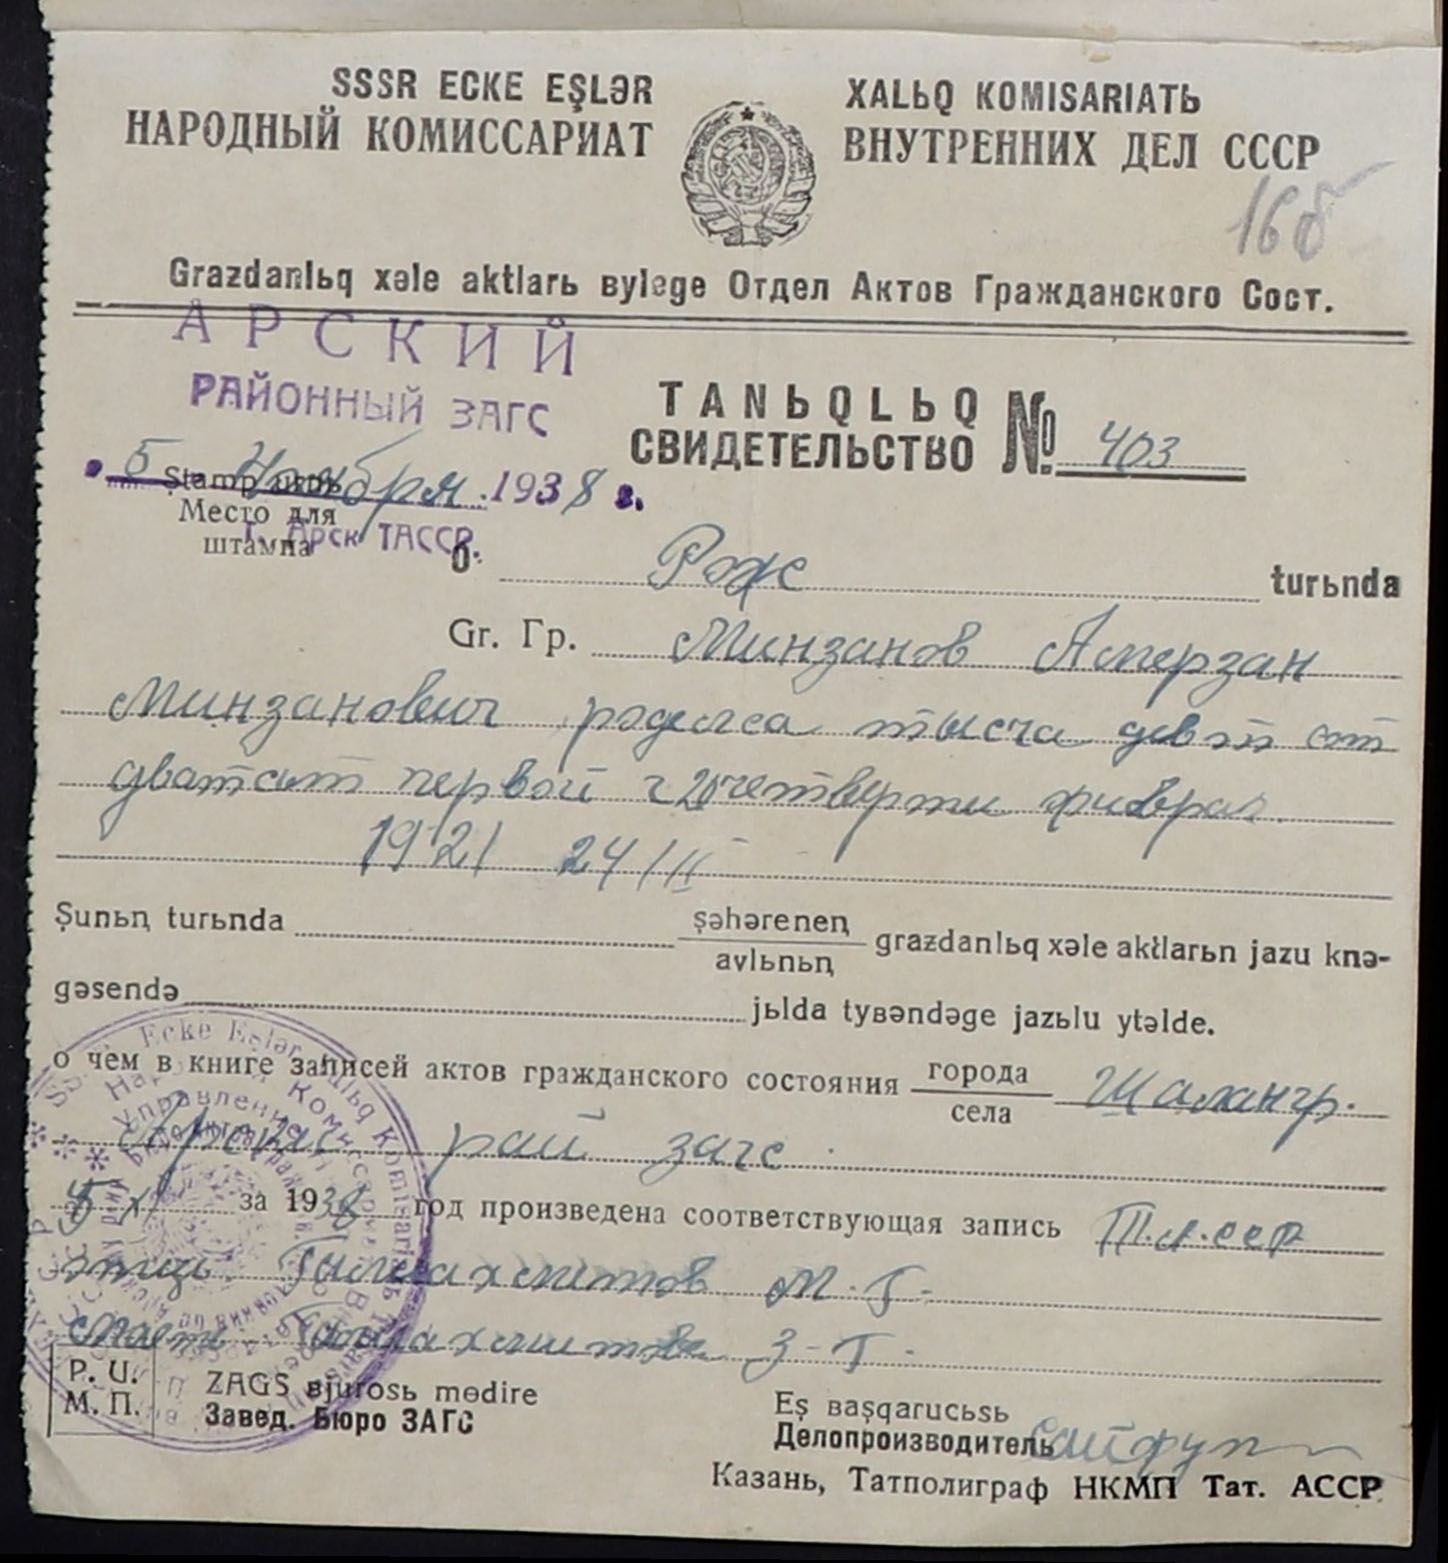 SSSR ECKE EŞLƏR XALЬQ KOMISARIATЬ
НАРОДНЫЙ КОМИССАРИАТ ВНУТРЕННИХ ДЕЛ СССР
16б
Graƶdanlьq xəle aktlarь вylege Отдел Актов Гражданского Сост.
АРСКИЙ
РАЙОННЫЙ ЗАГС
TANЬQLЬQ
СВИДЕТЕЛЬСТВО № 403
5 Ноября 1938 г.
Ştamp
Место для
штампа
г. Арск ТАССР.
О Рож turьnda
Gr. Гр. Минзанов Амерзан
Минзанович родился тысча девят сот
дватсат первой г 20 четверти феврал.
1921 24/II
Şunьꞑ turьnda şəhəreneꞑ avlьnьꞑ graƶdanlьq xəle aktlarьn jazu knə-
gəsendə jьlda tyвəndəge jazьlu ytəlde.
о чем в книге записей актов гражданского состояния города села Шалангр.
Арский рай загс
5 XI за 1938 год произведена соответствующая запись Т.А.ССР
отиц М. Г.
мать З-Г.
P. U.
М. П.
ZAGS вjurosь mɵdire
Завед. Бюро ЗАГС
Eş вaşqarucьsь
Делопроизводитель
Казань, Татполиграф НКМП Тат. АССР